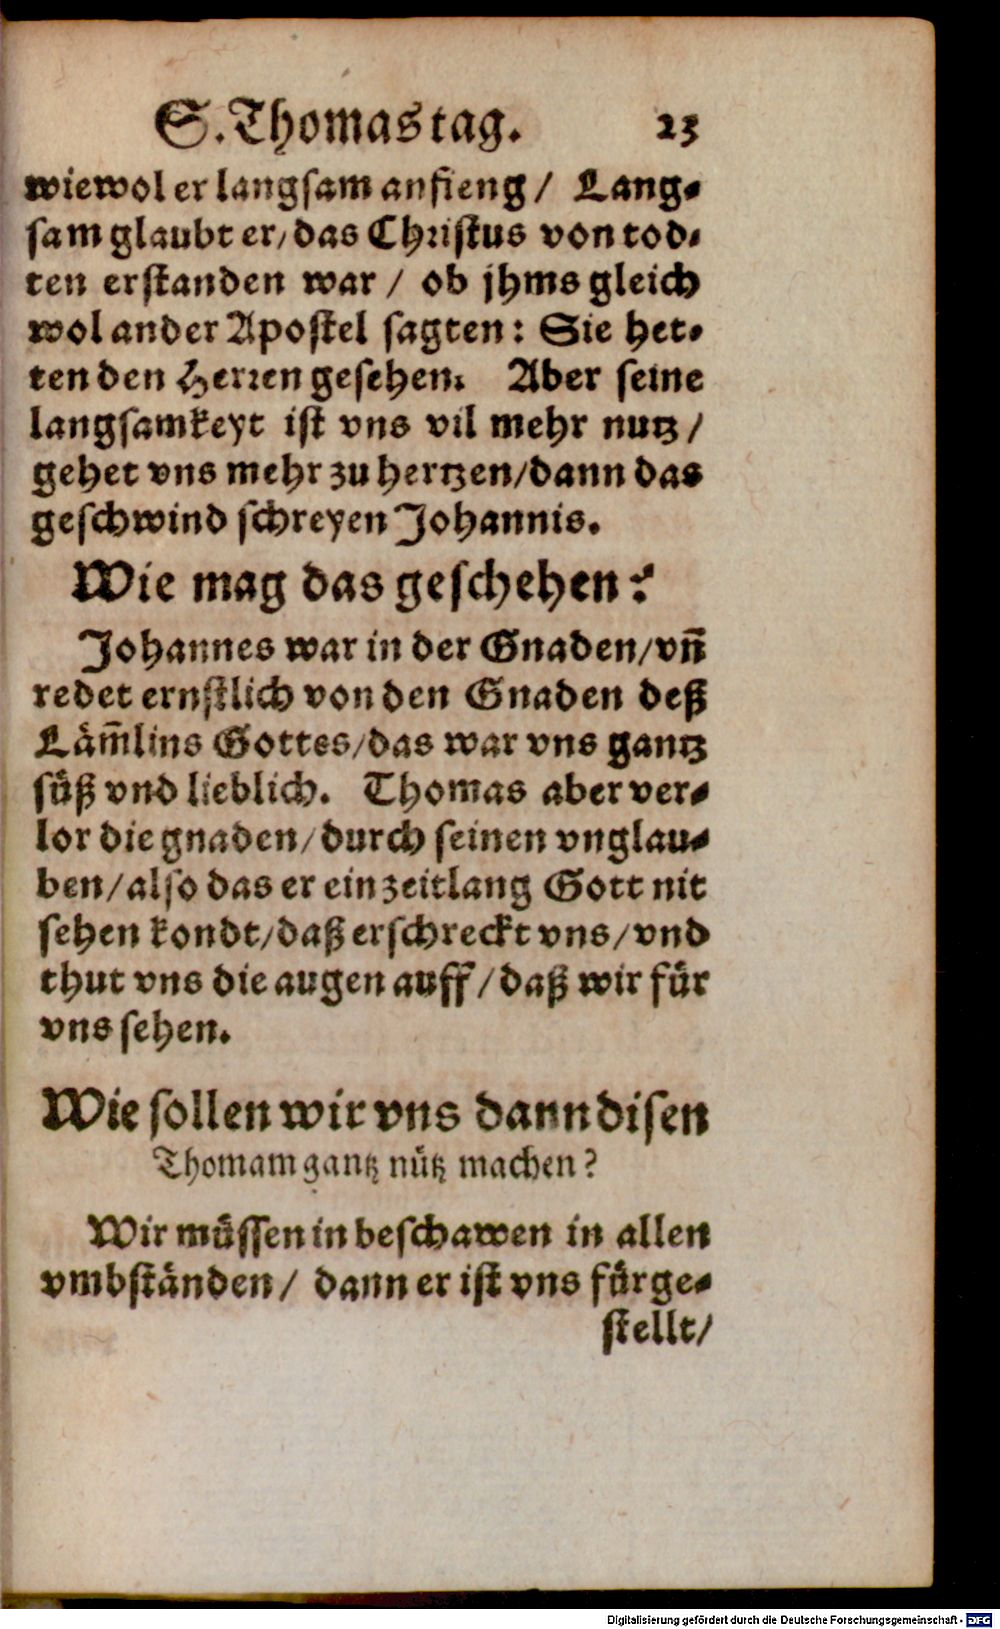 S. Thomas tag. 23
wiewol er langsam anfieng / Lang-
sam glaubt er, das Christus von tod-
ten erstanden war / ob jhms gleich
wol ander Apostel sagten: Sie het-
ten den Herren gesehen. Aber seine
langsamkeyt ist vns vil mehr nutz /
gehet vns mehr zu hertzen / dann das
geschwind schreyen Johannis.
Wie mag das geschehen?
Johannes war in der Gnaden / vn̄
redet ernstlich von den Gnaden deß
Läm̄lins Gottes / das war vns gantz
süß vnd lieblich. Thomas aber ver-
lor die gnaden / durch seinen vnglau-
ben / also das er ein zeitlang Gott nit
sehen kondt / daß erschreckt vns / vnd
thut vns die augen auff / daß wir für
vns sehen.
Wie sollen wir vns dann disen
Thomam gantz nütz machen?
Wir müssen in beschawen in allen
vmbständen / dann er ist vns fürge-
stellt /
Digitalisierung gefördert durch die Deutsche Forschungsgemeinschaft - DFG